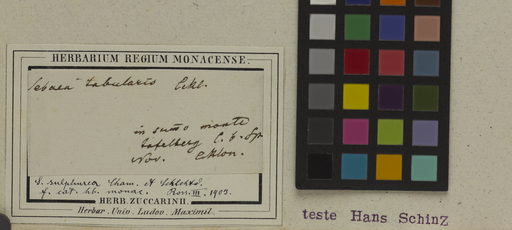 HERBARIUM REGIUM MONACENSE.
Sebaea tabularis Eckl.
in sum̄o monte
tafelberg C. b. Sp.
Nov. Eklon.
S. sulphurea Cham. et Schlchtd.
f. cat. hb. monac. III. 1903.
HERB. ZUCCARINII.
Herbar. Univ. Ludov. Maximil.
teste Hans Schinz